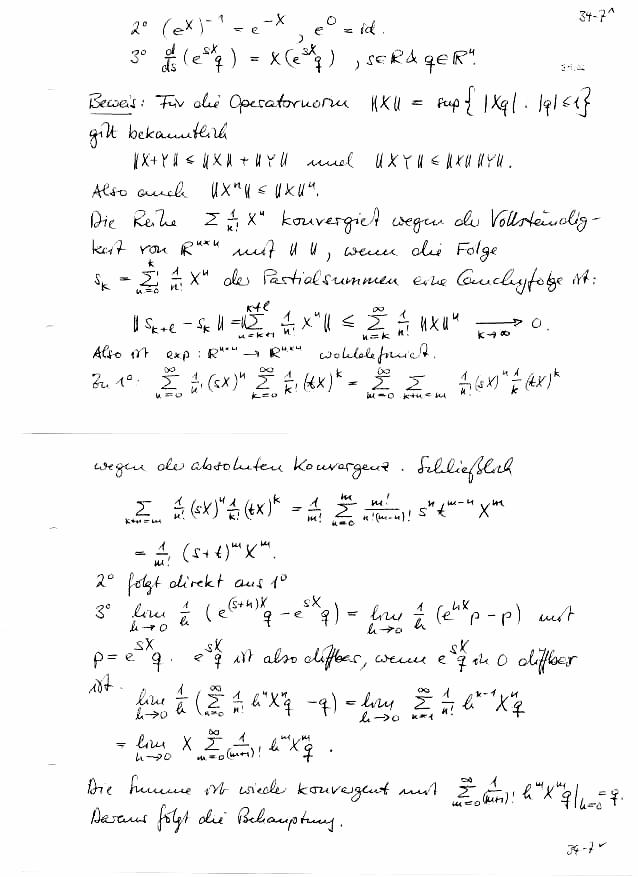 34-7^
2° (e^X)^{-1} = e^{-X}, e^0 = id.
3° d/ds (e^{sX} q) = X(e^{sX} q), s∈R & q∈R^n.
Beweis: Für die Operatornorm ‖X‖ = sup{ |Xq| . |q| ≤ 1}
gilt bekanntlich
‖X+Y‖ ≤ ‖X‖ + ‖Y‖ und ‖XY‖ ≤ ‖X‖ ‖Y‖.
Also auch ‖X^n‖ ≤ ‖X‖^n.
Die Reihe Σ 1/k! X^n konvergiert wegen der Vollständig-
keit von R^{n×n} mit ‖ ‖, wenn die Folge
s_k = Σ_{n=0}^{k} 1/n! X^n der Partialsummen eine Cauchyfolge ist:
‖s_{k+ℓ} - s_k‖ = ‖Σ_{n=k+1}^{k+ℓ} 1/n! X^n‖ ≤ Σ_{n=k}^{∞} 1/n! ‖X‖^n ⟶_{k→∞} 0.
Also ist exp : R^{n×n} → R^{n×n} wohldefiniert.
Zu 1°: Σ_{n=0}^{∞} 1/n! (sX)^n Σ_{k=0}^{∞} 1/k! (tX)^k = Σ_{m=0}^{∞} Σ_{k+n=m} 1/n! (sX)^n 1/k (tX)^k
wegen der absoluten Konvergenz. Schließlich
Σ_{k+n=m} 1/n! (sX)^n 1/k! (tX)^k = 1/m! Σ_{n=0}^{m} m!/n!(m-n)! s^n t^{m-n} X^m
= 1/m! (s+t)^m X^m.
2° folgt direkt aus 1°
3° lim_{h→0} 1/h (e^{(s+h)X} q - e^{sX} q) = lim_{h→0} 1/h (e^{hX} p - p) mit
p = e^{sX} q. e^{sX} q ist also diffbar, wenn e^{sX} q in 0 diffbar
ist. lim_{h→0} 1/h (Σ_{n=0}^{∞} 1/n! h^n X^n q - q) = lim_{h→0} Σ_{n=1}^{∞} 1/n! h^{n-1} X^n q
= lim_{h→0} X Σ_{m=0}^{∞} 1/(m+1)! h^m X^m q.
Die Summe ist wieder konvergent mit Σ_{m=0}^{∞} 1/(m+1)! h^m X^m q|_{h=0} = q.
Daraus folgt die Behauptung.
34-7